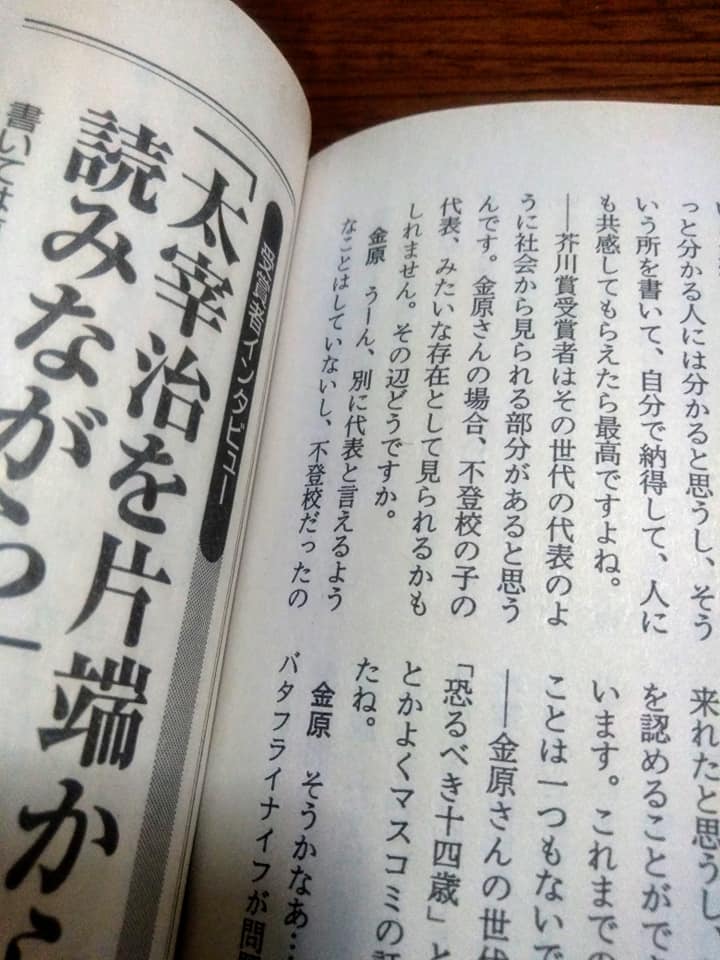 っと分かる人には分かると思うし、そう
いう所を書いて、自分で納得して、人に
も共感してもらえたら最高ですよね。
――芥川賞受賞者はその世代の代表のよ
うに社会から見られる部分があると思う
んです。金原さんの場合、不登校の子の
代表、みたいな存在として見られるかも
しれません。その辺どうですか。
金原　うーん、別に代表と言えるよう
なことはしていないし、不登校だったの
来れたと思うし、
を認めることがで
います。これまでの
ことは一つもないで
――金原さんの世代
「恐るべき十四歳」と
とかよくマスコミの
たね。
金原　そうかなあ…
バタフライナイフが問
受賞者インタビュー
「太宰治を片端から
読みながら
書いては